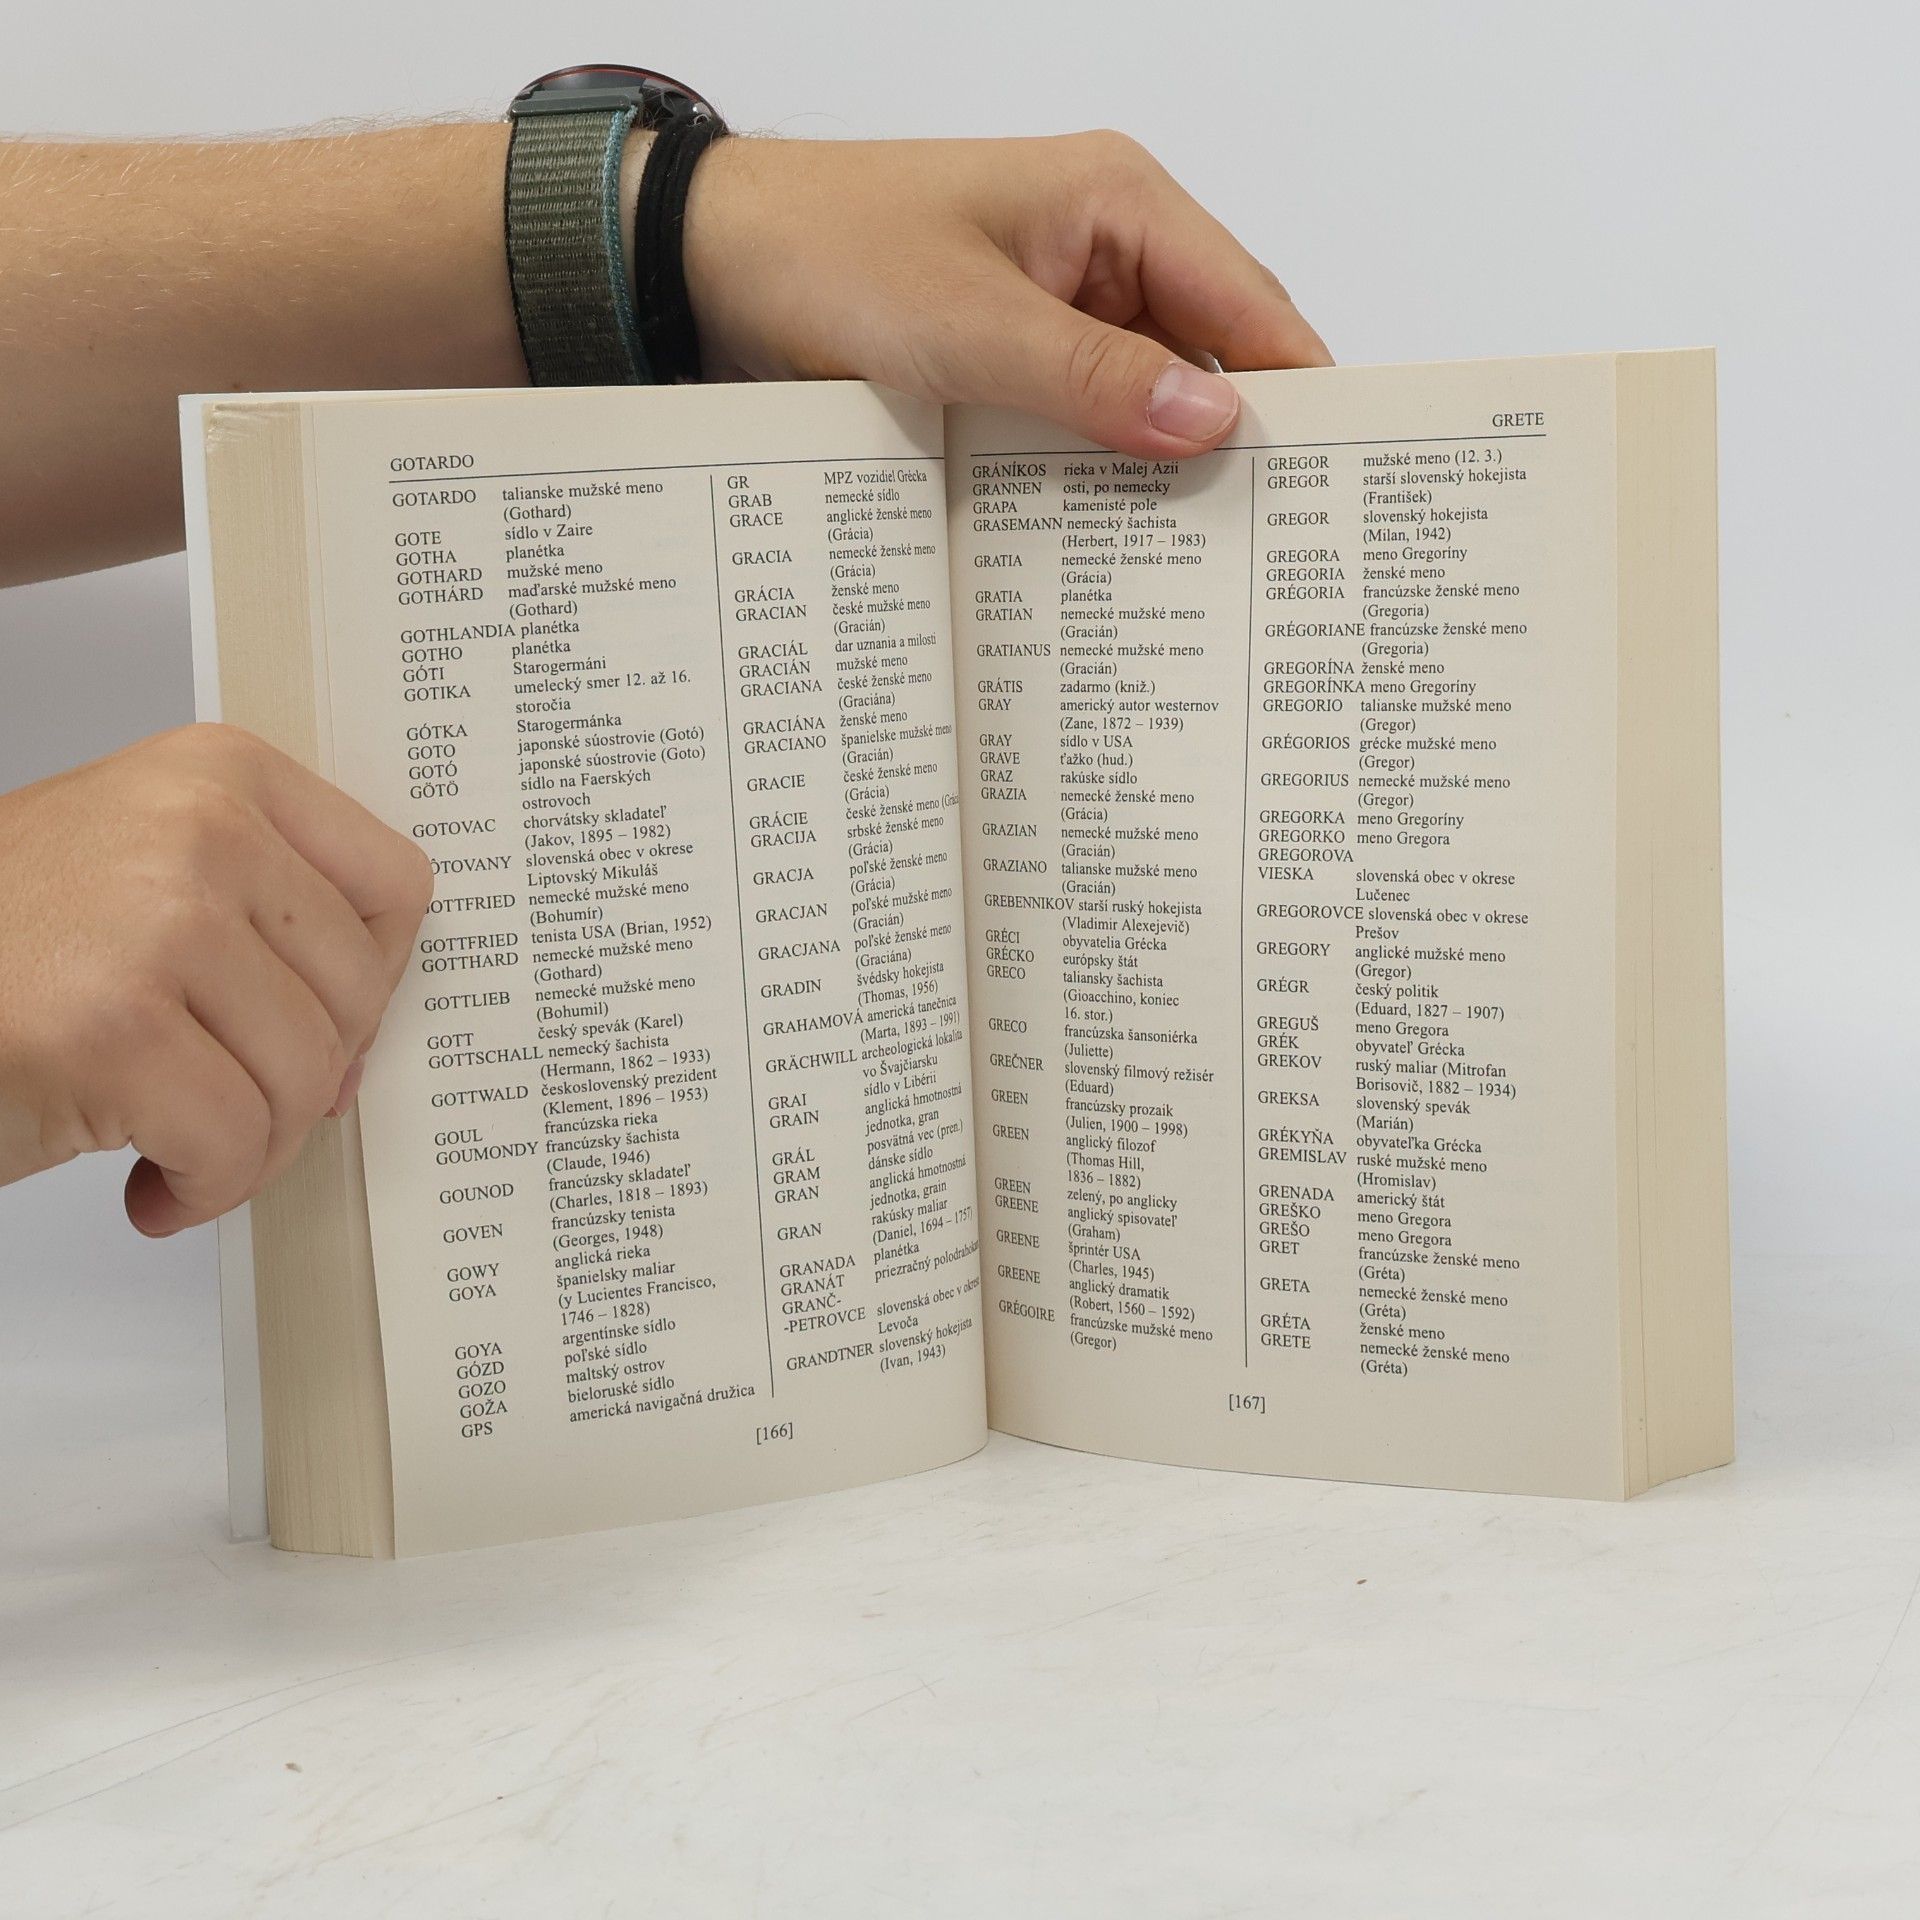 GOTARDO
GOTARDO talianske mužské meno
(Gothard)
GOTE sídlo v Zaire
GOTHA planétka
GOTHARD mužské meno
GOTHÁRD maďarské mužské meno
(Gothard)
GOTHLANDIA planétka
GOTHO planétka
GÓTI Starogermáni
GOTIKA umelecký smer 12. až 16.
storočia
GÓTKA Starogermánka
GOTO japonské súostrovie (Gotó)
GOTÓ japonské súostrovie (Goto)
GÖTÖ sídlo na Faerských
ostrovoch
GOTOVAC chorvátsky skladateľ
(Jakov, 1895 – 1982)
ÔTOVANY slovenská obec v okrese
Liptovský Mikuláš
OTTFRIED nemecké mužské meno
(Bohumír)
GOTTFRIED tenista USA (Brian, 1952)
GOTTHARD nemecké mužské meno
(Gothard)
GOTTLIEB nemecké mužské meno
(Bohumil)
GOTT český spevák (Karel)
GOTTSCHALL nemecký šachista
(Hermann, 1862 – 1933)
GOTTWALD československý prezident
(Klement, 1896 – 1953)
GOUL francúzska rieka
GOUMONDY francúzsky šachista
(Claude, 1946)
GOUNOD francúzsky skladateľ
(Charles, 1818 – 1893)
GOVEN francúzsky tenista
(Georges, 1948)
GOWY anglická rieka
GOYA španielsky maliar
(y Lucientes Francisco,
1746 – 1828)
GOYA argentínske sídlo
GÓZD poľské sídlo
GOZO maltský ostrov
GOŽA bieloruské sídlo
GPS americká navigačná družica
GR MPZ vozidiel Grécka
GRAB nemecké sídlo
GRACE anglické ženské meno
(Grácia)
GRACIA nemecké ženské meno
(Grácia)
GRÁCIA ženské meno
GRACIAN české mužské meno
(Gracián)
GRACIÁL dar uznania a milosti
GRACIÁN mužské meno
GRACIANA české ženské meno
(Graciána)
GRACIÁNA ženské meno
GRACIANO španielske mužské meno
(Gracián)
GRACIE české ženské meno
(Grácia)
GRÁCIE české ženské meno
GRACIJA srbské ženské meno
(Grácia)
GRACJA poľské ženské meno
(Grácia)
GRACJAN poľské mužské meno
(Gracián)
GRACJANA poľské ženské meno
(Graciána)
GRADIN švédsky hokejista
(Thomas, 1956)
GRAHAMOVÁ americká tanečnica
(Marta, 1893 – 1991)
GRÄCHWILL archeologická lokalita
vo Švajčiarsku
GRAI sídlo v Libérii
GRAIN anglická hmotnostná
jednotka, gran
GRÁL posvätná vec (pren.)
GRAM dánske sídlo
GRAN anglická hmotnostná
jednotka, grain
GRAN rakúsky maliar
(Daniel, 1694 – 1757)
GRANADA planétka
GRANÁT priezračný polodrahokam
GRANČ-
-PETROVCE slovenská obec v okrese
Levoča
GRANDTNER slovenský hokejista
(Ivan, 1943)
[166]
GRETE
GRÁNÍKOS rieka v Malej Azii
GRANNEN osti, po nemecky
GRAPA kamenisté pole
GRASEMANN nemecký šachista
(Herbert, 1917 – 1983)
GRATIA nemecké ženské meno
(Grácia)
GRATIA planétka
GRATIAN nemecké mužské meno
(Gracián)
GRATIANUS nemecké mužské meno
(Gracián)
GRÁTIS zadarmo (kniž.)
GRAY americký autor westernov
(Zane, 1872 – 1939)
GRAY sídlo v USA
GRAVE ťažko (hud.)
GRAZ rakúske sídlo
GRAZIA nemecké ženské meno
(Grácia)
GRAZIAN nemecké mužské meno
(Gracián)
GRAZIANO talianske mužské meno
(Gracián)
GREBENNIKOV starší ruský hokejista
(Vladimir Alexejevič)
GRÉCI obyvatelia Grécka
GRÉCKO európsky štát
GRECO taliansky šachista
(Gioacchino, koniec
16. stor.)
GRECO francúzska šansoniérka
(Juliette)
GREČNER slovenský filmový režisér
(Eduard)
GREEN francúzsky prozaik
(Julien, 1900 – 1998)
GREEN anglický filozof
(Thomas Hill,
1836 – 1882)
GREEN zelený, po anglicky
GREENE anglický spisovateľ
(Graham)
GREENE šprintér USA
(Charles, 1945)
GREENE anglický dramatik
(Robert, 1560 – 1592)
GRÉGOIRE francúzske mužské meno
(Gregor)
GREGOR mužské meno (12. 3.)
GREGOR starší slovenský hokejista
(František)
GREGOR slovenský hokejista
(Milan, 1942)
GREGORA meno Gregoríny
GREGORIA ženské meno
GRÉGORIA francúzske ženské meno
(Gregoria)
GRÉGORIANE francúzske ženské meno
(Gregoria)
GREGORÍNA ženské meno
GREGORÍNKA meno Gregoríny
GREGORIO talianske mužské meno
(Gregor)
GRÉGORIOS grécke mužské meno
(Gregor)
GREGORIUS nemecké mužské meno
(Gregor)
GREGORKA meno Gregoríny
GREGORKO meno Gregora
GREGOROVA
VIESKA slovenská obec v okrese
Lučenec
GREGOROVCE slovenská obec v okrese
Prešov
GREGORY anglické mužské meno
(Gregor)
GRÉGR český politik
(Eduard, 1827 – 1907)
GREGUŠ meno Gregora
GRÉK obyvateľ Grécka
GREKOV ruský maliar (Mitrofan
Borisovič, 1882 – 1934)
GREKSA slovenský spevák
(Marián)
GRÉKYŇA obyvateľka Grécka
GREMISLAV ruské mužské meno
(Hromislav)
GRENADA americký štát
GREŠKO meno Gregora
GREŠO meno Gregora
GRET francúzske ženské meno
(Gréta)
GRETA nemecké ženské meno
(Gréta)
GRÉTA ženské meno
GRETE nemecké ženské meno
(Gréta)
[167]